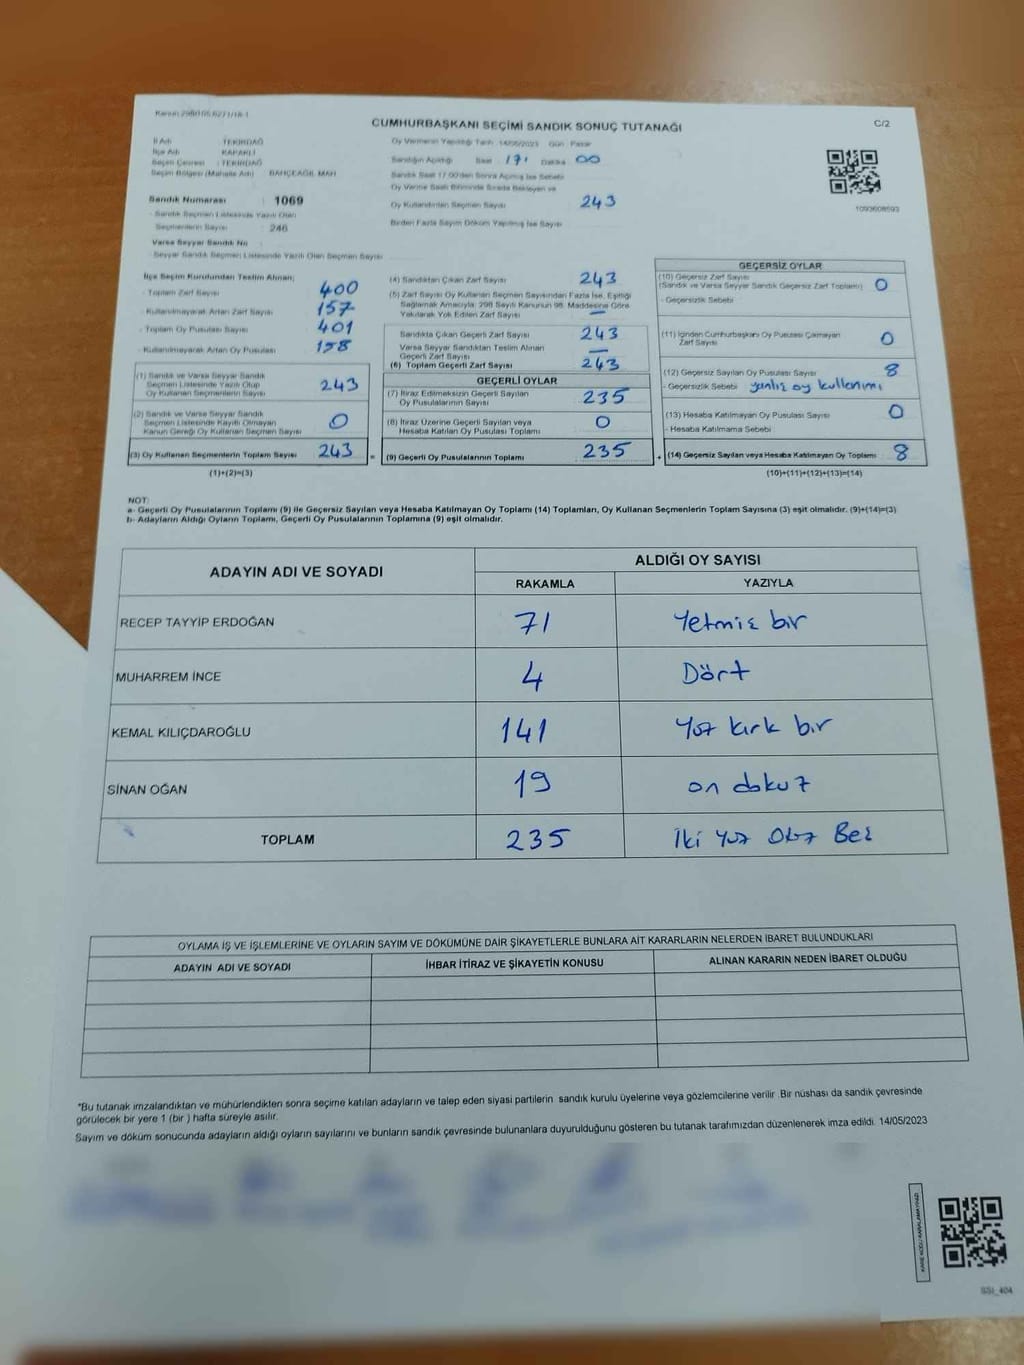 Kanun:298/105,6271/18-1
CUMHURBAŞKANI SEÇİMİ SANDIK SONUÇ TUTANAĞI
C/2
İl Adı : TEKİRDAĞ
İlçe Adı : KAPAKLI
Seçim Çevresi : TEKİRDAĞ
Seçim Bölgesi (Mahalle Adı) BAHÇEAĞIL MAH.
Oy Vermenin Yapıldığı Tarih 14/05/2023 Gün Pazar
Sandığın Açıldığı Saat 17 Dakika 00
Sandık Saat 17:00'den Sonra Açılmış İse Sebebi
Oy Verme Saati Bitiminde Sırada Bekleyen ve
Oy Kullandırılan Seçmen Sayısı 243
Birden Fazla Sayım Döküm Yapılmış İse Sayısı
1093608593
Sandık Numarası : 1069
- Sandık Seçmen Listesinde Yazılı Olan
Seçmenlerin Sayısı : 246
Varsa Seyyar Sandık No
- Seyyar Sandık Seçmen Listesinde Yazılı Olan Seçmen Sayısı
İlçe Seçim Kurulundan Teslim Alınan;
- Toplam Zarf Sayısı 400
- Kullanılmayarak Artan Zarf Sayısı 157
- Toplam Oy Pusulası Sayısı 401
- Kullanılmayarak Artan Oy Pusulası 158
(1) Sandık ve Varsa Seyyar Sandık
Seçmen Listesinde Yazılı Olup
Oy Kullanan Seçmenlerin Sayısı 243
(2) Sandık ve Varsa Seyyar Sandık
Seçmen Listesinde Kayıtlı Olmayan
Kanun Gereği Oy Kullanan Seçmen Sayısı 0
(3) Oy Kullanan Seçmenlerin Toplam Sayısı 243
(1)+(2)=(3)
(4) Sandıktan Çıkan Zarf Sayısı 243
(5) Zarf Sayısı Oy Kullanan Seçmen Sayısından Fazla İse, Eşitliği
Sağlamak Amacıyla; 298 Sayılı Kanunun 98. Maddesine Göre
Yakılarak Yok Edilen Zarf Sayısı —
Sandıkta Çıkan Geçerli Zarf Sayısı 243
Varsa Seyyar Sandıktan Teslim Alınan
Geçerli Zarf Sayısı —
(6) Toplam Geçerli Zarf Sayısı 243
GEÇERLİ OYLAR
(7) İtiraz Edilmeksizin Geçerli Sayılan
Oy Pusulalarının Sayısı 235
(8) İtiraz Üzerine Geçerli Sayılan veya
Hesaba Katılan Oy Pusulası Toplamı 0
= (9) Geçerli Oy Pusulalarının Toplamı 235
GEÇERSİZ OYLAR
(10) Geçersiz Zarf Sayısı
(Sandık ve Varsa Seyyar Sandık Geçersiz Zarf Toplamı) 0
- Geçersizlik Sebebi
(11) İçinden Cumhurbaşkanı Oy Pusulası Çıkmayan
Zarf Sayısı 0
(12) Geçersiz Sayılan Oy Pusulası Sayısı 8
- Geçersizlik Sebebi yanlış oy kullanımı
(13) Hesaba Katılmayan Oy Pusulası Sayısı 0
- Hesaba Katılmama Sebebi
+ (14) Geçersiz Sayılan veya Hesaba Katılmayan Oy Toplamı 8
(10)+(11)+(12)+(13)=(14)
NOT:
a- Geçerli Oy Pusulalarının Toplamı (9) ile Geçersiz Sayılan veya Hesaba Katılmayan Oy Toplamı (14) Toplamları, Oy Kullanan Seçmenlerin Toplam Sayısına (3) eşit olmalıdır. (9)+(14)=(3)
b- Adayların Aldığı Oyların Toplamı, Geçerli Oy Pusulalarının Toplamına (9) eşit olmalıdır.
ADAYIN ADI VE SOYADI
ALDIĞI OY SAYISI
RAKAMLA YAZIYLA
RECEP TAYYİP ERDOĞAN 71 Yetmiş bir
MUHARREM İNCE 4 Dört
KEMAL KILIÇDAROĞLU 141 Yüz kırk bir
SİNAN OĞAN 19 on dokuz
TOPLAM 235 İki Yüz Otuz Beş
OYLAMA İŞ VE İŞLEMLERİNE VE OYLARIN SAYIM VE DÖKÜMÜNE DAİR ŞİKAYETLERLE BUNLARA AİT KARARLARIN NELERDEN İBARET BULUNDUKLARI
ADAYIN ADI VE SOYADI İHBAR İTİRAZ VE ŞİKAYETİN KONUSU ALINAN KARARIN NEDEN İBARET OLDUĞU
*Bu tutanak imzalandıktan ve mühürlendikten sonra seçime katılan adayların ve talep eden siyasi partilerin sandık kurulu üyelerine veya gözlemcilerine verilir. Bir nüshası da sandık çevresinde
görülecek bir yere 1 (bir ) hafta süreyle asılır.
Sayım ve döküm sonucunda adayların aldığı oyların sayılarını ve bunların sandık çevresinde bulunanlara duyurulduğunu gösteren bu tutanak tarafımızdan düzenlenerek imza edildi. 14/05/2023
KARE KODU KARALAMAYINIZ!
SSI_404